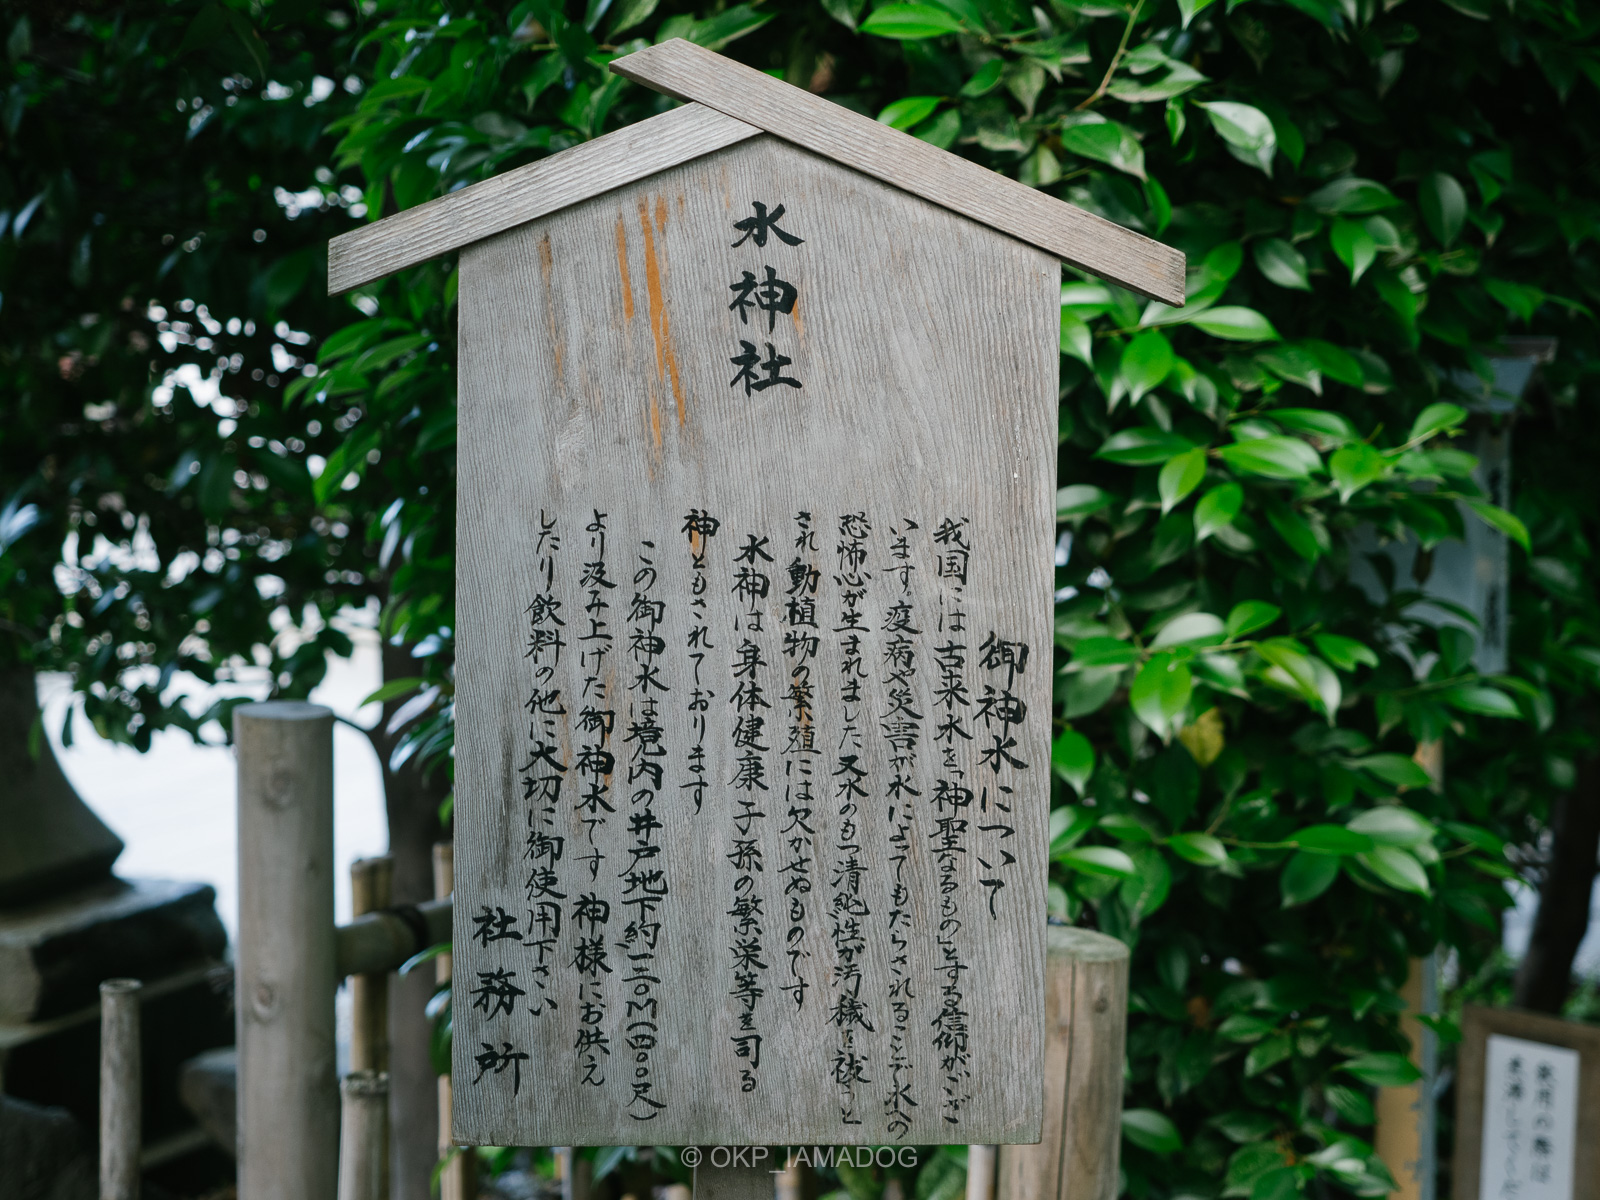 水神社
御神水について
我国には古来水を「神聖なるもの」とする信仰がござ
います。疫病や災害が水によってもたらされることで水への
恐怖心が生まれました又水のもつ清浄性が汚穢を祓うと
され動植物の繁殖には欠かせぬものです
水神は身体健康子孫の繁栄等を司る
神ともされております
この御神水は境内の井戸地下約一三〇M(四〇〇尺)
より汲み上げた御神水です 神様にお供え
したり飲料の他に大切に御使用下さい
社務所
飲用の際は
© OKP_IAMADOG